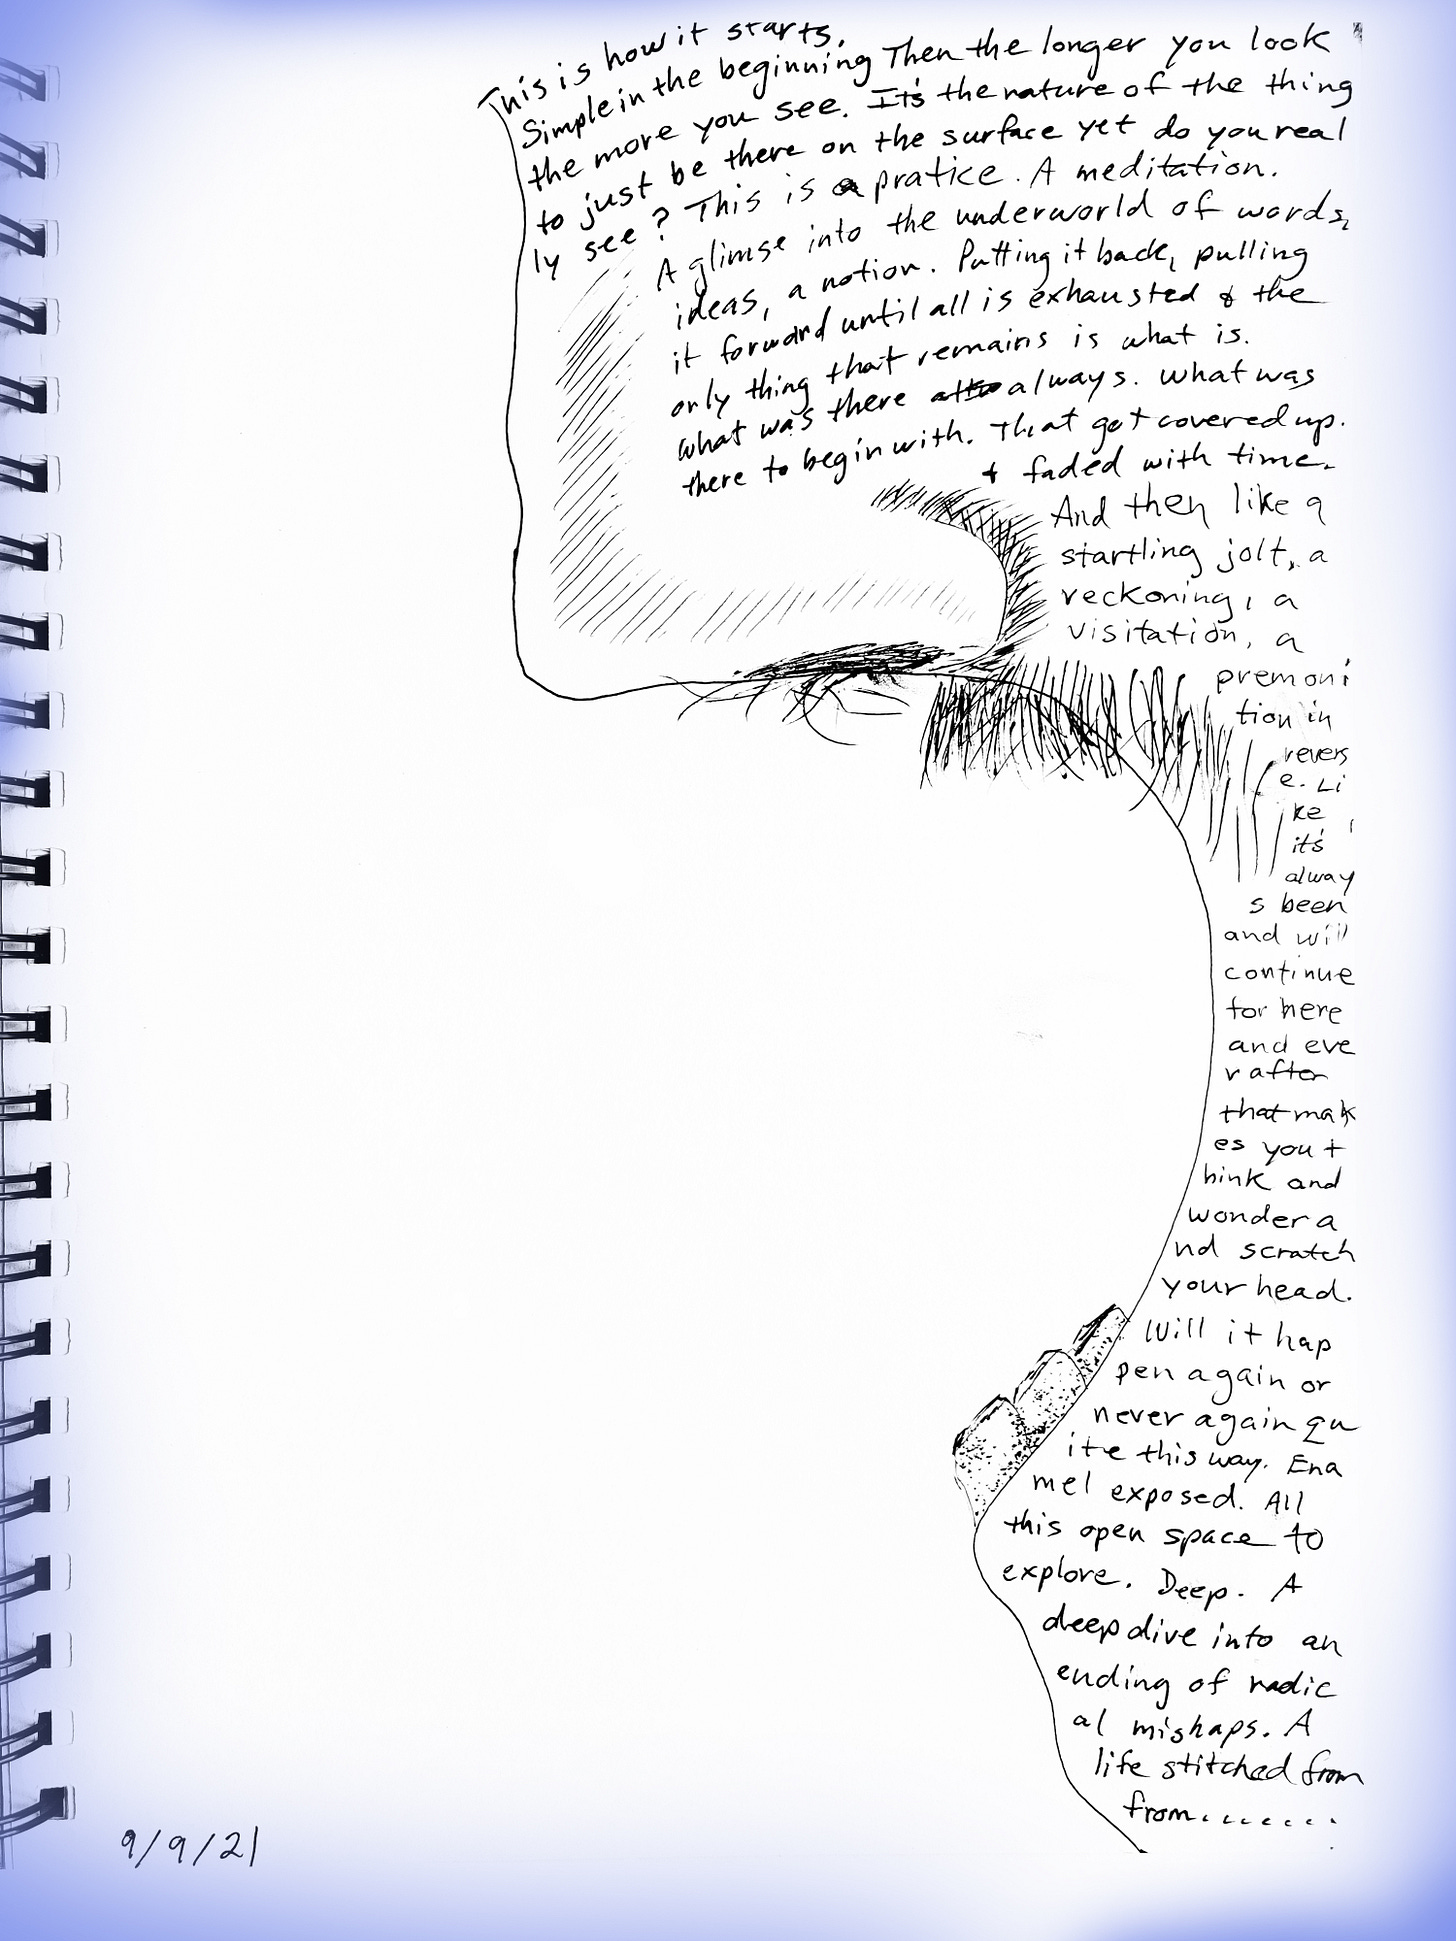 This is how it starts.
Simple in the beginning Then the longer you look
the more you see. It's the nature of the thing
to just be there on the surface yet do you real
ly see? This is a pratice. A meditation.
A glimse into the underworld of words,
ideas, a notion. Putting it back, pulling
it forward until all is exhausted & the
only thing that remains is what is.
What was there always. What was
there to begin with. That got covered up.
+ faded with time.
And then like a
startling jolt, a
reckoning, a
visitation, a
premoni
tion in
revers
e. Li
ke
it's
alway
s been
and will
continue
for here
and eve
r after
that mak
es you t
hink and
wonder a
nd scratch
your head.
Will it hap
pen again or
never again qu
ite this way. Ena
mel exposed. All
this open space to
explore. Deep. A
deep dive into an
ending of radic
al mishaps. A
life stitched from
from.......
9/9/21